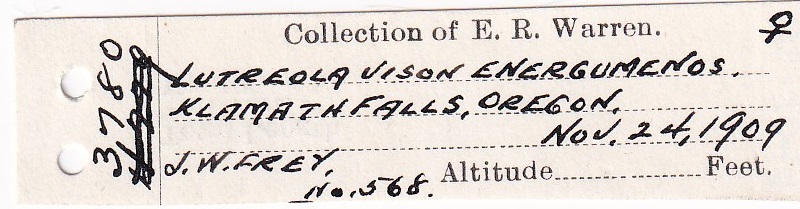 Collection of E. R. Warren. ♀
3780
LUTREOLA VISON ENERGUMENOS.
KLAMATH FALLS, OREGON.
NOV. 24, 1909
J. W. FREY.
No. 568.
Altitude Feet.